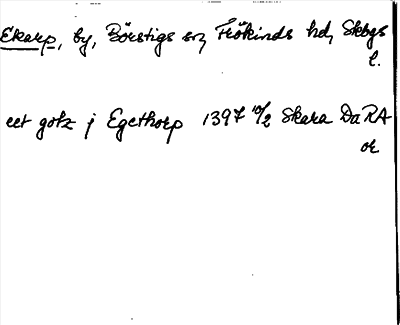 Ekarp, by, Börstigs sn, Frökinds hd, Skbgs
l.
eet gotz j Egethorp 1397 10/2 Skara DaRA
or